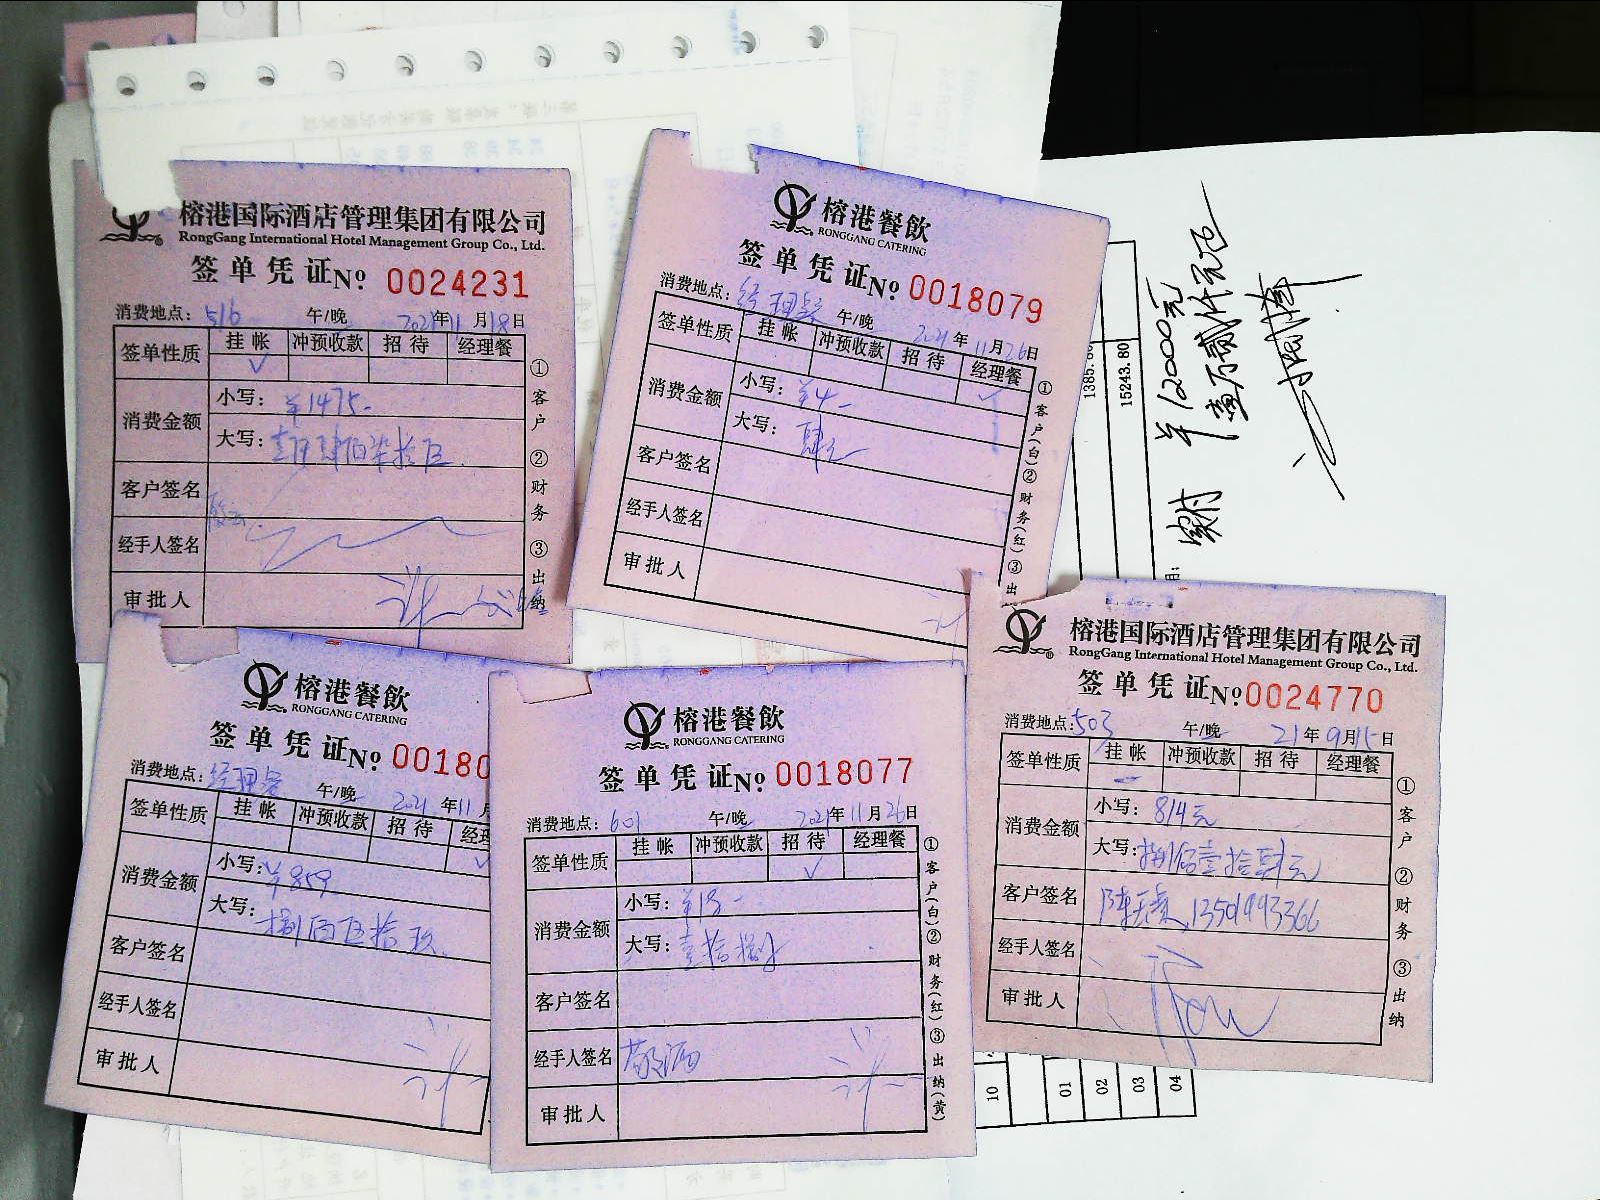 榕港国际酒店管理集团有限公司
RongGang International Hotel Management Group Co., Ltd.
签单凭证№ 0024231
消费地点: 516 午/晚 2021年11月18日
签单性质 挂帐 冲预收款 招待 经理餐
✓
消费金额 小写: ¥1475-
大写: 壹仟肆佰柒拾伍
客户签名
经手人签名
审批人
① 客户 ② 财务 ③ 出纳
榕港餐飲
RONGGANG CATERING
签单凭证№ 0018079
消费地点: 经理餐 午/晚 2021年11月26日
签单性质 挂帐 冲预收款 招待 经理餐
✓
消费金额 小写: ¥4-
大写: 肆元
客户签名
经手人签名
审批人
① 客户(白) ② 财务(红) ③ 出
1385.
15243.80
¥12000元
壹万贰仟元
榕港餐飲
RONGGANG CATERING
签单凭证№ 00180
消费地点: 经理餐 午/晚 2021年11月
签单性质 挂帐 冲预收款 招待 经理
✓
消费金额 小写: ¥859
大写: 捌佰伍拾玖
客户签名
经手人签名
审批人
榕港餐飲
RONGGANG CATERING
签单凭证№ 0018077
消费地点: 601 午/晚 2021年11月26日
签单性质 挂帐 冲预收款 招待 经理餐
✓
消费金额 小写: ¥18-
大写: 壹拾捌
客户签名
经手人签名 敬酒
审批人
① 客户(白) ② 财务(红) ③ 出纳(黄)
榕港国际酒店管理集团有限公司
RongGang International Hotel Management Group Co., Ltd.
签单凭证№ 0024770
消费地点: 503 午/晚 21年9月15日
签单性质 挂帐 冲预收款 招待 经理餐
消费金额 小写: 814元
大写: 捌佰壹拾肆元
客户签名 13501993366
经手人签名
审批人
① 客户 ② 财务 ③ 出纳
10
01
02
03
04